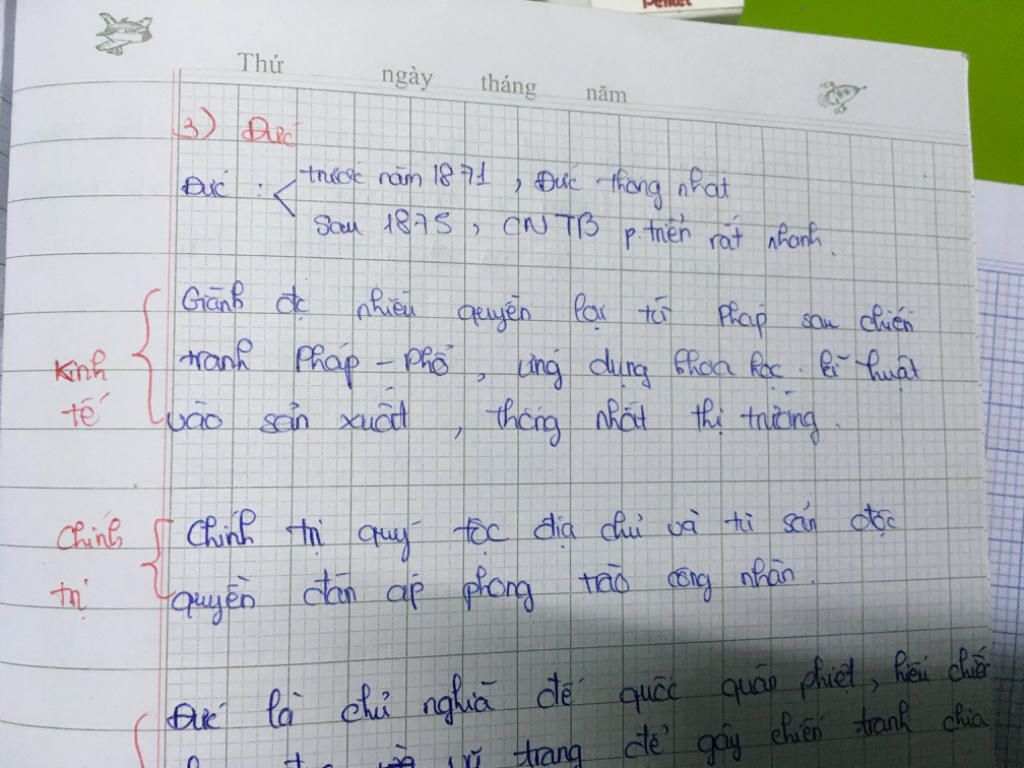 Pentel
Thứ ngày tháng năm
3) Đức
Đức : trước năm 1871, Đức thống nhất
sau 1875, CNTB p.triển rất nhanh.
Kinh tế
Giành đc nhiều quyền lợi từ Pháp sau chiến
tranh Pháp - Phổ, ứng dụng khoa học. kĩ thuật
vào sản xuất, thống nhất thị trường.
Chính trị
Chính trị quý tộc địa chủ và tư sản độc
quyền đàn áp phong trào công nhân.
Đức là chủ nghĩa đế quốc quân phiệt, hiếu chiế
vũ trang để gây chiến tranh chia